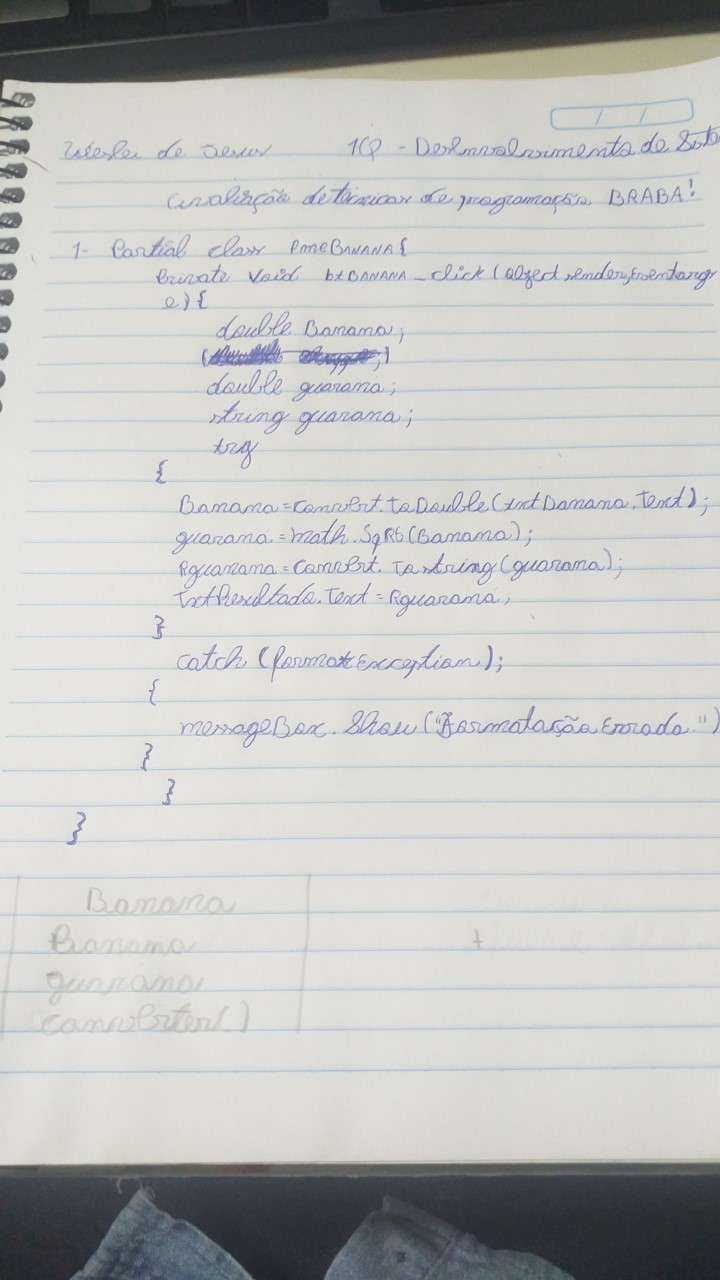 / /
de Jesus 1Q - Desenvolvimento de Siste
Avaliação de técnicas de programação BRABA!
1- Partial class FmeBANANA{
Private Void btBANANA_click(object sender, Eventargs
e) {
double Banana;
double guarana;
string guarana;
try
{
Banana = Convert.ToDouble(txtBanana.Text);
guarana = math.SqRt(Banana);
Rguarana = Convert.Tostring(guarana);
TxtResultado.Text = Rguarana;
}
catch (formatException);
{
messageBox.Show("Formatação Errada.")
}
}
}
Banana
Banana
guarana
converter()